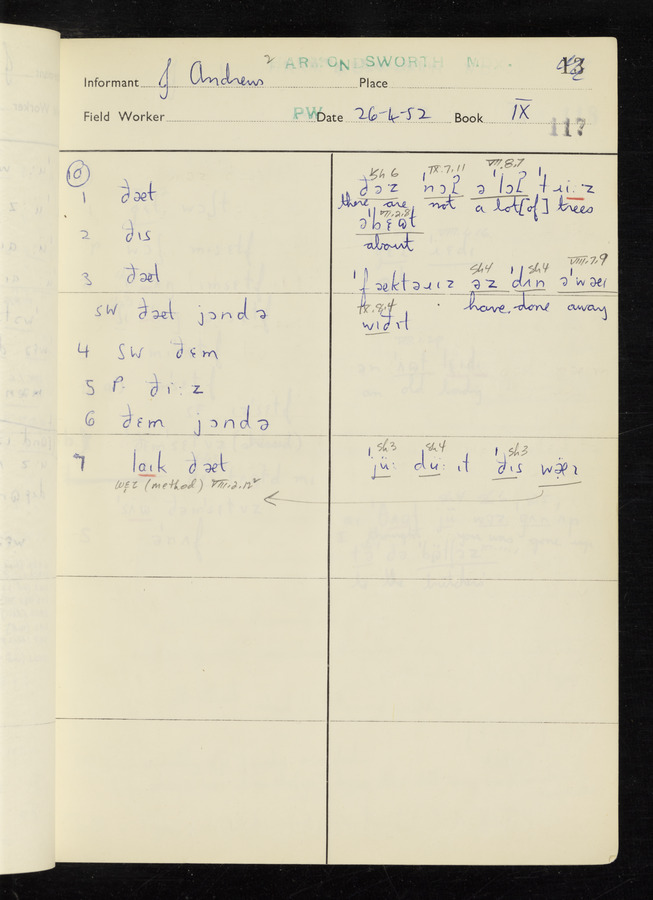 HARMONDSWORTH Mdx. 43
Informant J Andrews 2 Place
PW
Field Worker Date 26-4-52 Book IX
117
10
1 ðæt
2 ðɪs
3 ðæt
SW ðæt jɔndə
4 SW ðɛm
5 P. ði:z
6 ðɛm jɔndə
7 laɪk ðæt
wɛɪ (method) VIII.2.12²
Sh 6 IX.7.11 VII.8.7
ðəz ˈnɔʔ ə ˈlɔʔ ˈtɹi:z
there are not a lot [of] trees
VII.2.8
əˈbɛʊt
about
Sh4 Sh4 VIII.7.9
ˈfæktəɹɪz əz ˈdɪn əˈwæɪ
IX.8.4 have done away
wɪðɪt
Sh3 Sh4 Sh3
ˈjü: dü: ɪt ˈðɪs wæ̈ɪ